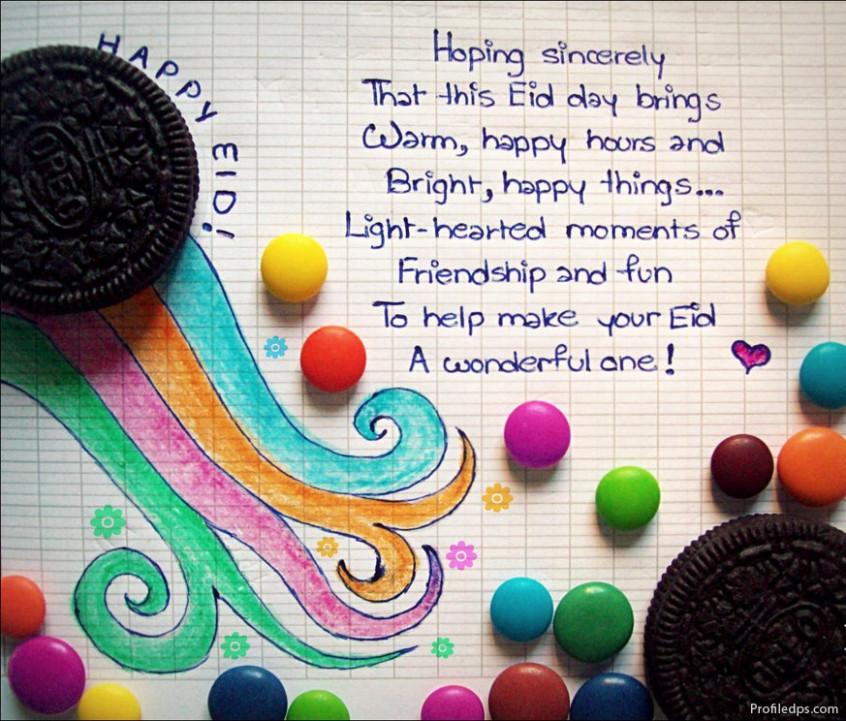 HAPPY EID!
Hoping sincerely
That this Eid day brings
Warm, happy hours and
Bright, happy things...
Light-hearted moments of
Friendship and fun
To help make your Eid
A wonderful one!
OREO
OREO
Profiledps.com